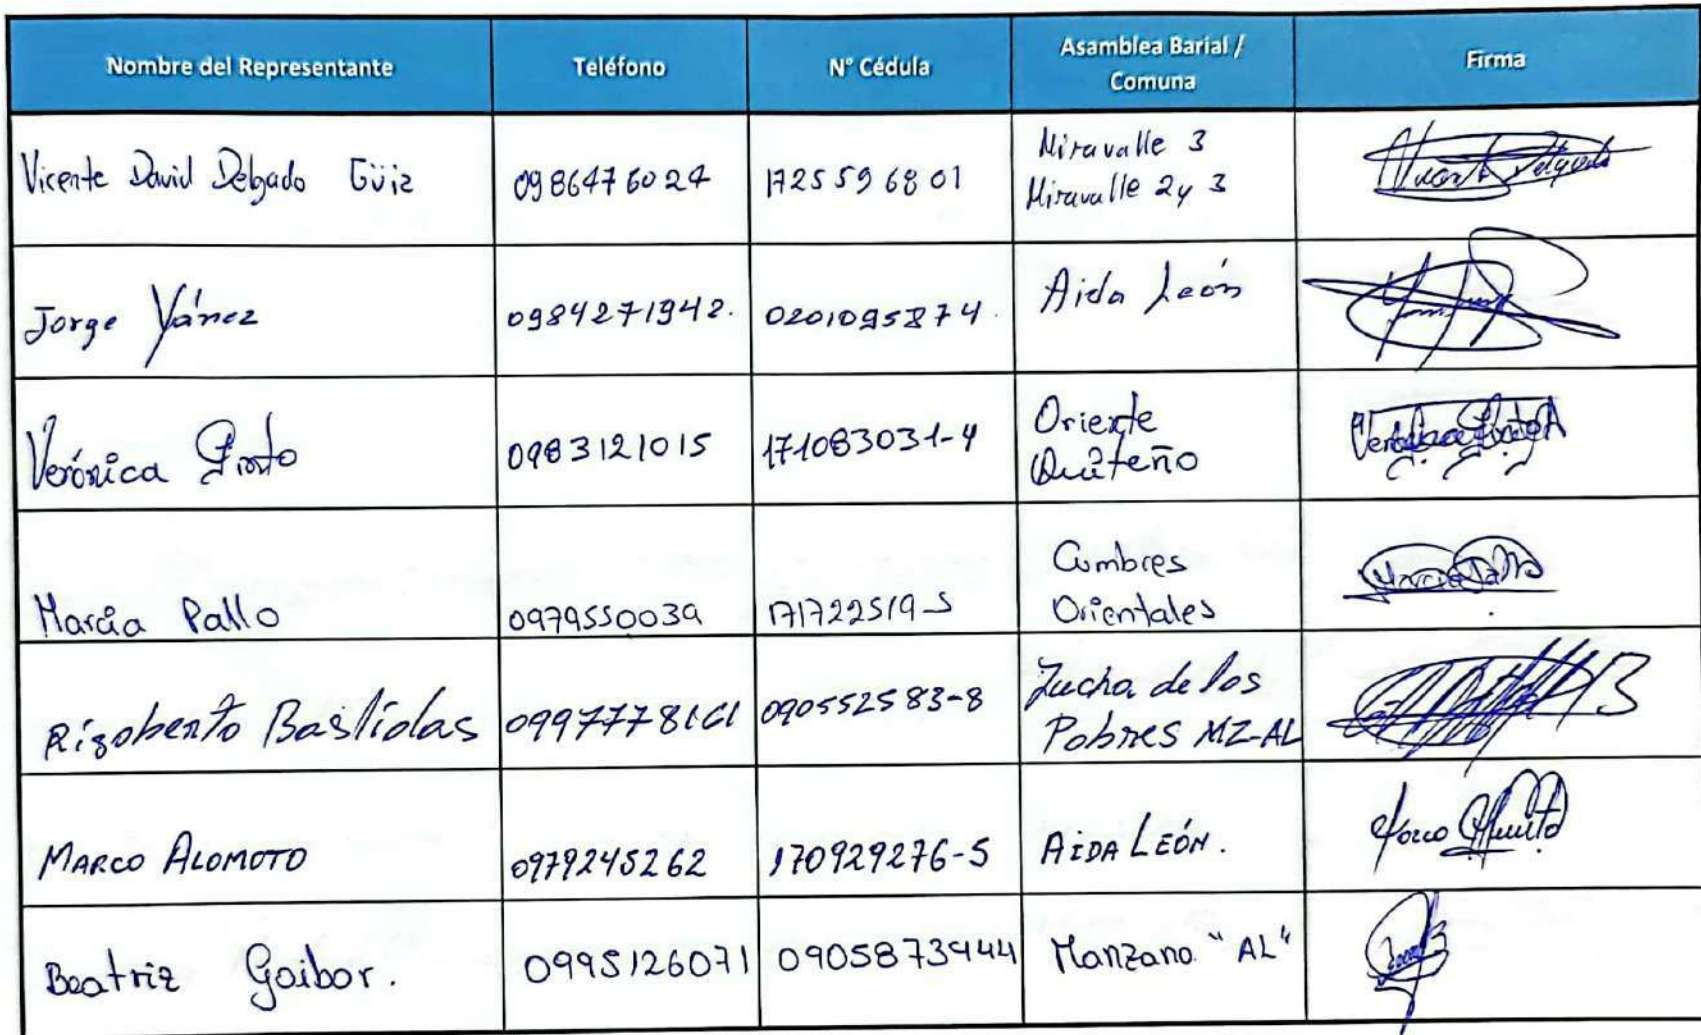 Nombre del Representante Teléfono N° Cédula Asamblea Barial / Comuna Firma
Vicente David Delgado Güiz 0986476024 1725596801 Miravalle 3
Miravalle 2y 3
Jorge Yánez 0984271942. 0201095874. Aida León
Verónica Pinto 0983121015 171083031-4 Oriente
Quiteño
Marcia Pallo 0979550039 171722519-5 Cumbres
Orientales
Rigoberto Bastidas 090552583-8 Lucha de los
Pobres MZ-AL
MARCO ALOMOTO 0979245262 170929276-5 AiDA LEÓN.
Beatriz Gaibor. 0995126071 0905873944 Manzano "AL"